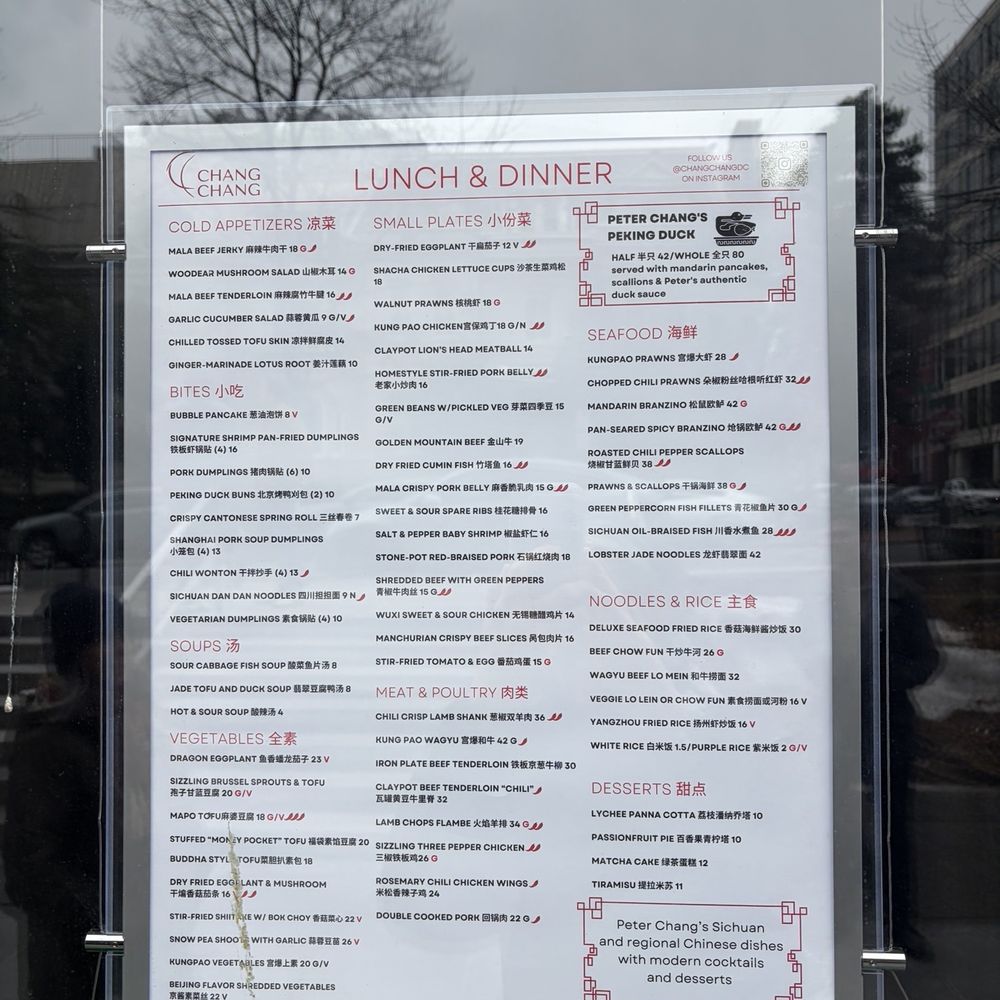 CHANG
CHANG
LUNCH & DINNER
FOLLOW US
@CHANGCHANGDC
ON INSTAGRAM
COLD APPETIZERS 凉菜
MALA BEEF JERKY 麻辣牛肉干 18 G
WOODEAR MUSHROOM SALAD 山椒木耳 14 G
MALA BEEF TENDERLOIN 麻辣腐竹牛腱 16
GARLIC CUCUMBER SALAD 蒜蓉黄瓜 9 G/V
CHILLED TOSSED TOFU SKIN 凉拌鲜腐皮 14
GINGER-MARINADE LOTUS ROOT 姜汁莲藕 10
BITES 小吃
BUBBLE PANCAKE 葱油泡饼 8 V
SIGNATURE SHRIMP PAN-FRIED DUMPLINGS
铁板虾锅贴 (4) 16
PORK DUMPLINGS 猪肉锅贴 (6) 10
PEKING DUCK BUNS 北京烤鸭刈包 (2) 10
CRISPY CANTONESE SPRING ROLL 三丝春卷 7
SHANGHAI PORK SOUP DUMPLINGS
小笼包 (4) 13
CHILI WONTON 干拌抄手 (4) 13
SICHUAN DAN DAN NOODLES 四川担担面 9 N
VEGETARIAN DUMPLINGS 素食锅贴 (4) 10
SOUPS 汤
SOUR CABBAGE FISH SOUP 酸菜鱼片汤 8
JADE TOFU AND DUCK SOUP 翡翠豆腐鸭汤 8
HOT & SOUR SOUP 酸辣汤 4
VEGETABLES 全素
DRAGON EGGPLANT 鱼香蟠龙茄子 23 V
SIZZLING BRUSSEL SPROUTS & TOFU
孢子甘蓝豆腐 20 G/V
MAPO TOFU麻婆豆腐 18 G/V
STUFFED "MONEY POCKET" TOFU 福袋素馅豆腐 20
BUDDHA STYLE TOFU菜胆扒素包 18
DRY FRIED EGGPLANT & MUSHROOM
干煸香菇茄条 16 V
STIR-FRIED SHIITAKE W/ BOK CHOY 香菇菜心 22 V
SNOW PEA SHOOTS WITH GARLIC 蒜蓉豆苗 26 V
KUNGPAO VEGETABLES 宫爆上素 20 G/V
BEIJING FLAVOR SHREDDED VEGETABLES
京酱素菜丝 22 V
SMALL PLATES 小份菜
DRY-FRIED EGGPLANT 干扁茄子 12 V
SHACHA CHICKEN LETTUCE CUPS 沙茶生菜鸡松
18
WALNUT PRAWNS 核桃虾 18 G
KUNG PAO CHICKEN宫保鸡丁18 G/N
CLAYPOT LION'S HEAD MEATBALL 14
HOMESTYLE STIR-FRIED PORK BELLY
老家小炒肉 16
GREEN BEANS W/PICKLED VEG 芽菜四季豆 15
G/V
GOLDEN MOUNTAIN BEEF 金山牛 19
DRY FRIED CUMIN FISH 竹塔鱼 16
MALA CRISPY PORK BELLY 麻香脆乳肉 15 G
SWEET & SOUR SPARE RIBS 桂花糖排骨 16
SALT & PEPPER BABY SHRIMP 椒盐虾仁 16
STONE-POT RED-BRAISED PORK 石锅红烧肉 18
SHREDDED BEEF WITH GREEN PEPPERS
青椒牛肉丝 15 G
WUXI SWEET & SOUR CHICKEN 无锡糖醋鸡片 14
MANCHURIAN CRISPY BEEF SLICES 吊包肉片 16
STIR-FRIED TOMATO & EGG 番茄鸡蛋 15 G
MEAT & POULTRY 肉类
CHILI CRISP LAMB SHANK 葱椒双羊肉 36
KUNG PAO WAGYU 宫爆和牛 42 G
IRON PLATE BEEF TENDERLOIN 铁板京葱牛柳 30
CLAYPOT BEEF TENDERLOIN "CHILI"
瓦罐黄豆牛里脊 32
LAMB CHOPS FLAMBE 火焰羊排 34 G
SIZZLING THREE PEPPER CHICKEN
三椒铁板鸡26 G
ROSEMARY CHILI CHICKEN WINGS
米松香辣子鸡 24
DOUBLE COOKED PORK 回锅肉 22 G
PETER CHANG'S
PEKING DUCK
HALF 半只 42/WHOLE 全只 80
served with mandarin pancakes,
scallions & Peter's authentic
duck sauce
SEAFOOD 海鲜
KUNGPAO PRAWNS 宫爆大虾 28
CHOPPED CHILI PRAWNS 朵椒粉丝哈根听红虾 32
MANDARIN BRANZINO 松鼠欧鲈 42 G
PAN-SEARED SPICY BRANZINO 炝锅欧鲈 42 G
ROASTED CHILI PEPPER SCALLOPS
烧椒甘蓝鲜贝 38
PRAWNS & SCALLOPS 干锅海鲜 38 G
GREEN PEPPERCORN FISH FILLETS 青花椒鱼片 30 G
SICHUAN OIL-BRAISED FISH 川香水煮鱼 28
LOBSTER JADE NOODLES 龙虾翡翠面 42
NOODLES & RICE 主食
DELUXE SEAFOOD FRIED RICE 香菇海鲜酱炒饭 30
BEEF CHOW FUN 干炒牛河 26 G
WAGYU BEEF LO MEIN 和牛捞面 32
VEGGIE LO LEIN OR CHOW FUN 素食捞面或河粉 16 V
YANGZHOU FRIED RICE 扬州虾炒饭 16 V
WHITE RICE 白米饭 1.5/PURPLE RICE 紫米饭 2 G/V
DESSERTS 甜点
LYCHEE PANNA COTTA 荔枝潘纳乔塔 10
PASSIONFRUIT PIE 百香果青柠塔 10
MATCHA CAKE 绿茶蛋糕 12
TIRAMISU 提拉米苏 11
Peter Chang's Sichuan
and regional Chinese dishes
with modern cocktails
and desserts